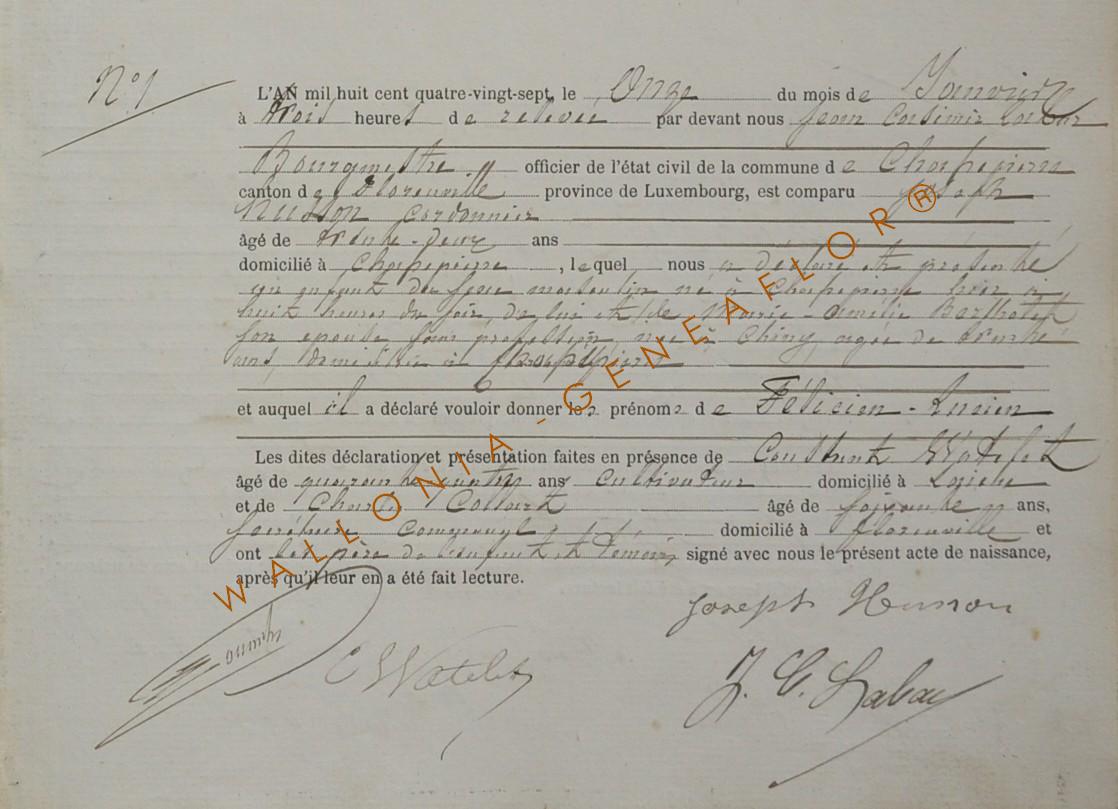 N° 1
L'AN mil huit cent quatre-vingt-sept, le Onze du mois de Janvier
à trois heures de relevée par devant nous Jean Casimir Labar
Bourgmestre officier de l'état civil de la commune de Chassepierre
canton de Florenville province de Luxembourg, est comparu Joseph
Husson Cordonnier
âgé de trente-deux ans
domicilié à Chassepierre, lequel nous a déclaré et présenté
un enfant du sexe masculin né à Chassepierre hier à
huit heures du soir, de lui et de Marie-Amélie
son épouse sans profession, née à Chiny, agée de trente
ans, domiciliée à Chassepierre
et auquel il a déclaré vouloir donner les prénoms de Félicien-Lucien
Les dites déclaration et présentation faites en présence de Constant Watelet
âgé de quarante quatre ans Cultivateur domicilié à Laiche
et de Charles Collard âgé de soixante ans,
secrétaire communal domicilié à Florenville et
ont les père de l'enfant et témoins signé avec nous le présent acte de naissance,
après qu'il leur en a été fait lecture.
Joseph Husson
C Watelet
J. C. Labar
WALLONIA-GENEAFLOR®